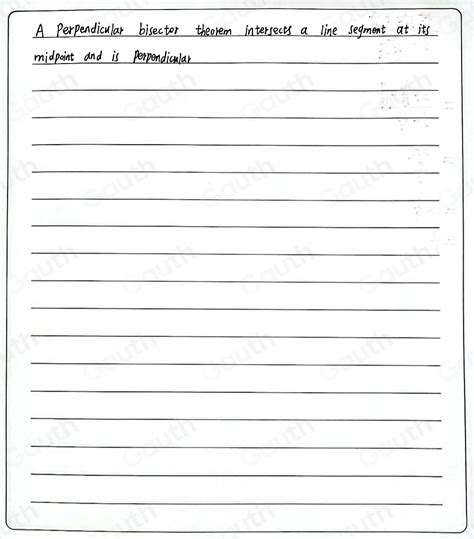 A Perpendicular bisector theorem intersects a line segment at its
midpoint and is Perpendicular